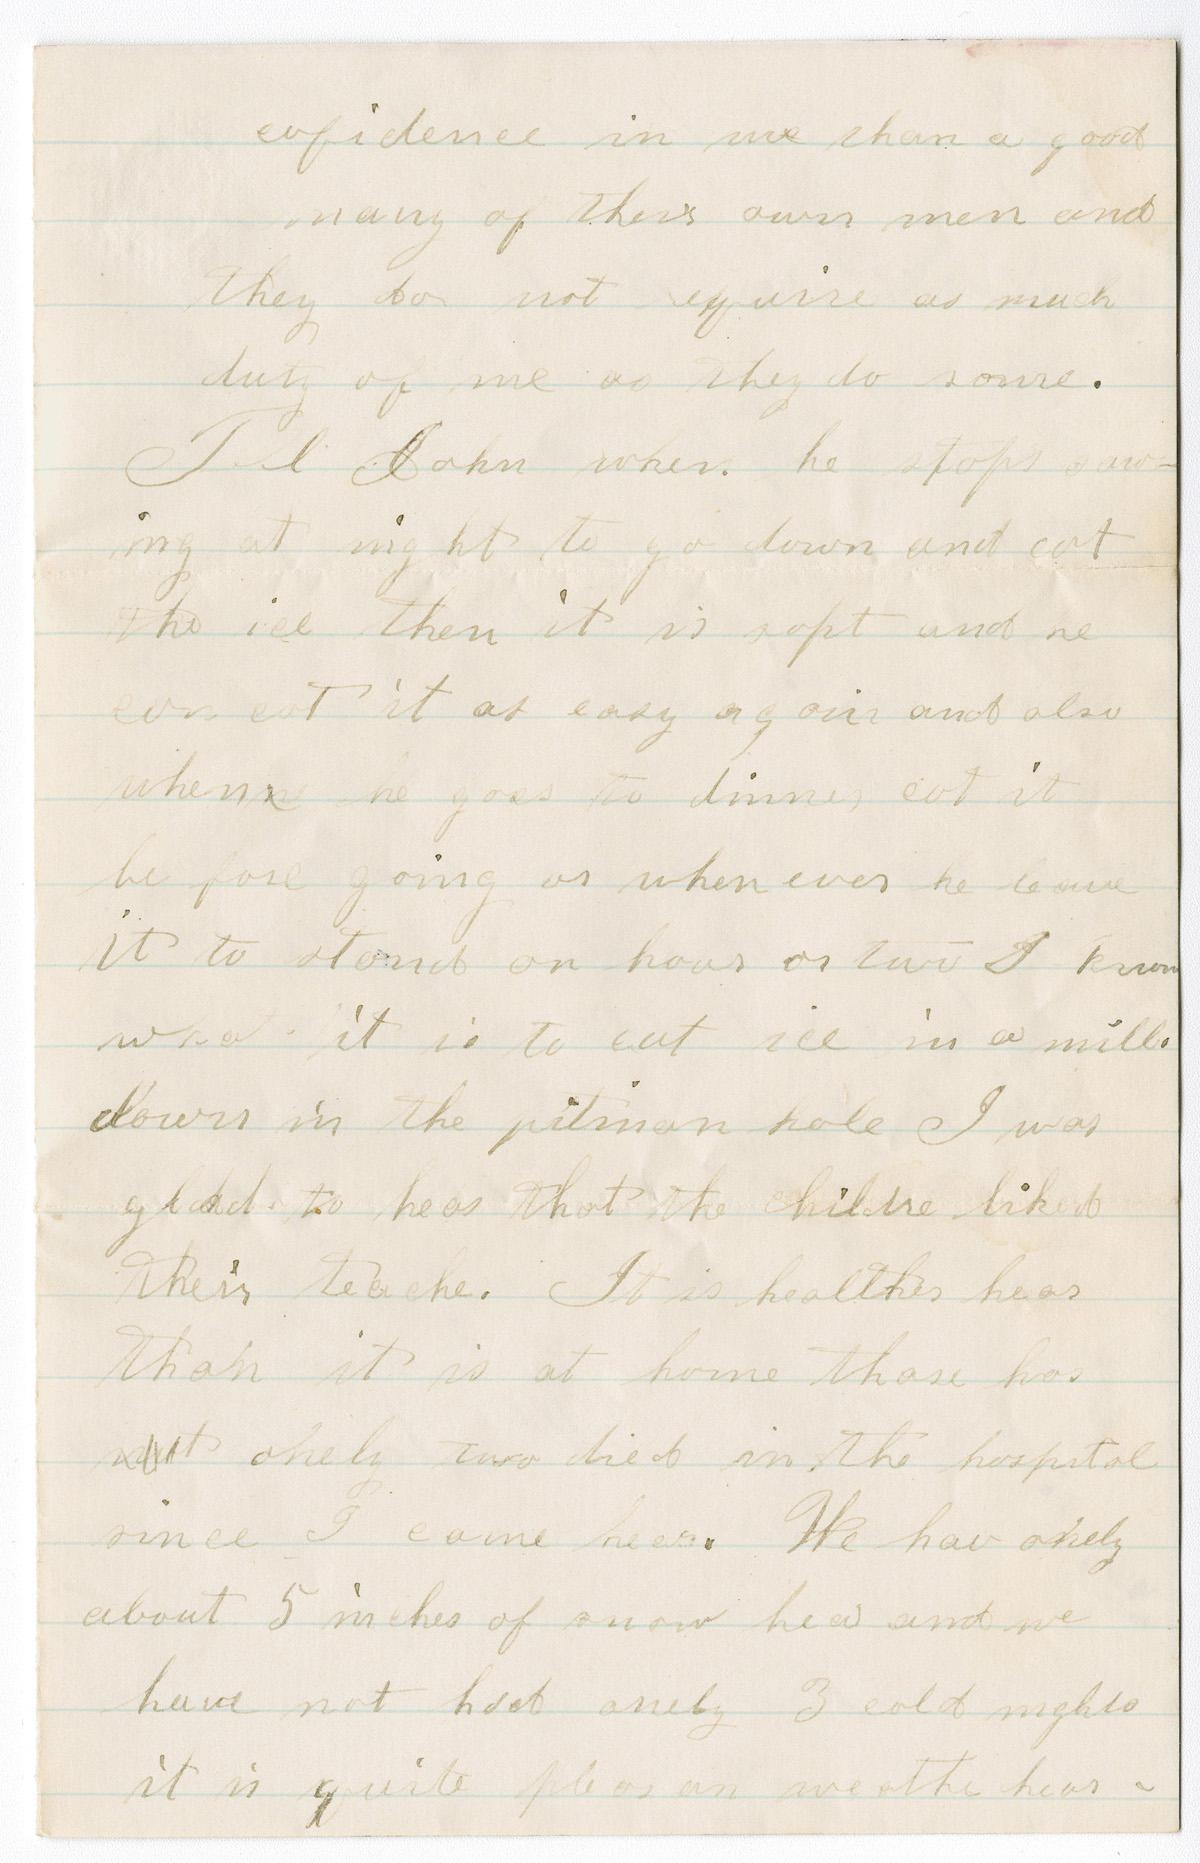 cofidence in me than a good
many of their own men and
they do not equire as much
duty of me as they do some.
Tel John when he stops saw-
ing at night to go down and cot
the ice then it is soft and he
can cot it as easy again and also
when he goes to dinner cot it
be fore going or when ever he leave
it to stand an hour or two I know
what it is to cut ice in a mill.
down in the pitman hole I was
glad to hear that the childre liked
their teache. It is healther hear
than it is at home thare has
not onely two died in the hospital
since I came hear. We hav onely
about 5 inches of snow hea and we
have not had onely 3 cold nights
it is quite pleasan weathe hear -